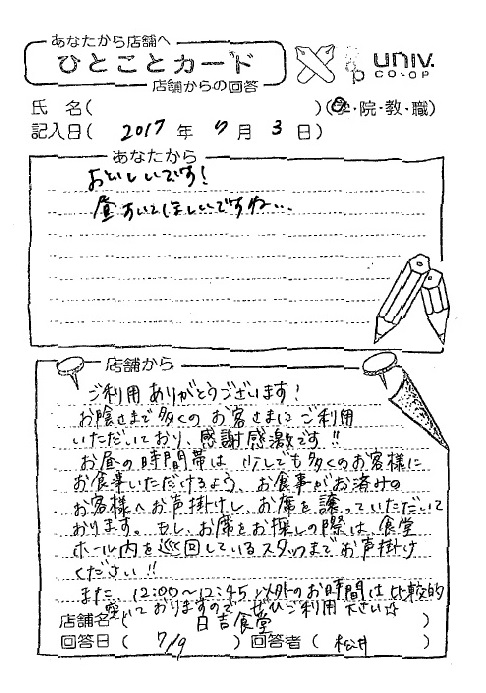 あなたから店舗へ
ひとことカード
店舗からの回答
univ.
CO-OP
氏 名( )(学・院・教・職)
記入日( 2017 年 7 月 3 日)
あなたから
おいしいです!
昼すいてほしいですね…
店舗から
ご利用ありがとうございます!
お陰さまで多くのお客さまにご利用
いただいており、感謝感激です!!
お昼の時間帯は、少しでも多くのお客様に
お食事いただけるよう、お食事がお済みの
お客様へお声掛けし、お席を譲っていただいて
おります。もし、お席をお探しの際は、食堂
ホール内を巡回しているスタッフまでお声掛け
ください!!
また、12:00〜12:45以外のお時間は比較的
空いておりますので、ぜひご利用下さい☆
店舗名( 日吉食堂 )
回答日( 7/9 ) 回答者( 松井 )